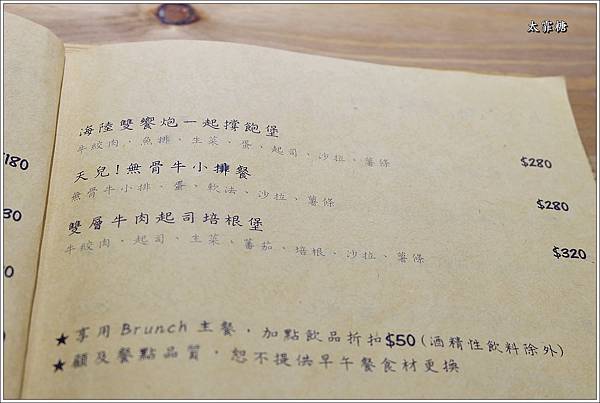 太妃糖
海陸雙饗炮一起撐飽堡
牛絞肉、魚排、生菜、蛋、起司、沙拉、薯條 $280
天兒!無骨牛小排餐
無骨牛小排、蛋、軟法、沙拉、薯條 $280
雙層牛肉起司培根堡
牛絞肉、起司、生菜、蕃茄、培根、沙拉、薯條 $320
★享用Brunch主餐，加點飲品折扣$50(酒精性飲料除外)
★顧及餐點品質，恕不提供早午餐食材更換
$180
30
0